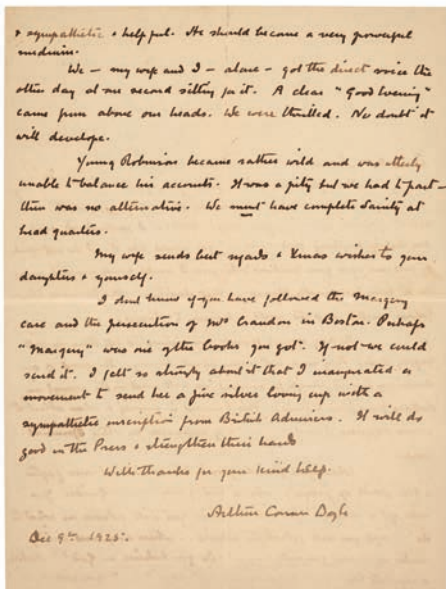 & sympathetic & helpful. He should become a very powerful
medium.
We – my wife and I – alone – got the direct voice the
other day at our second sitting for it. A clear "Good Evening"
came from above our heads. We were thrilled. No doubt it
will develope.
Young Robinson became rather wild and was utterly
unable to balance his accounts. It was a pity but we had to part –
there was no alternative. We must have complete Sanity at
head quarters.
My wife sends best regards & Xmas wishes to your
daughters & yourself.
I dont know if you have followed the Margery
case and the persecution of Mrs Crandon in Boston. Perhaps
"Margery" was one of the books you got. If not we could
send it. I felt so strongly about it that I inaugurated a
movement to send her a fine silver loving cup with a
sympathetic inscription from British Admirers. It will do
good in the Press & strengthen their hands
With thanks for your kind help.
Arthur Conan Doyle
Dec 9th 1925.